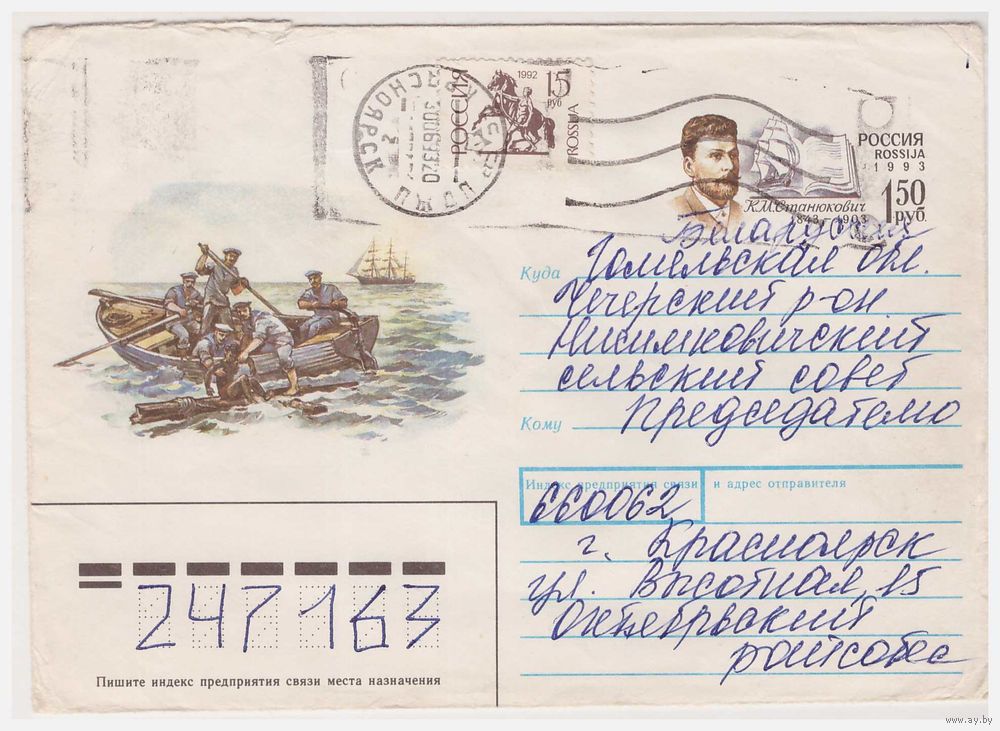 РОССИЯ
1992
15
руб
ROSSIJA
КРАСНОЯРСК
РОССИЯ
ROSSIJA
1993
1,50
руб.
К.М.Станюкович
1843 1903
Беларусь
Куда Гомельская обл.
Чечерский р-он
Нисимковичский
сельский совет
Кому Председателю
Индекс предприятия связи и адрес отправителя
660062
г. Красноярск
ул. Высотная, 15
Октябрьский
райсобес
247163
Пишите индекс предприятия связи места назначения
www.ay.by